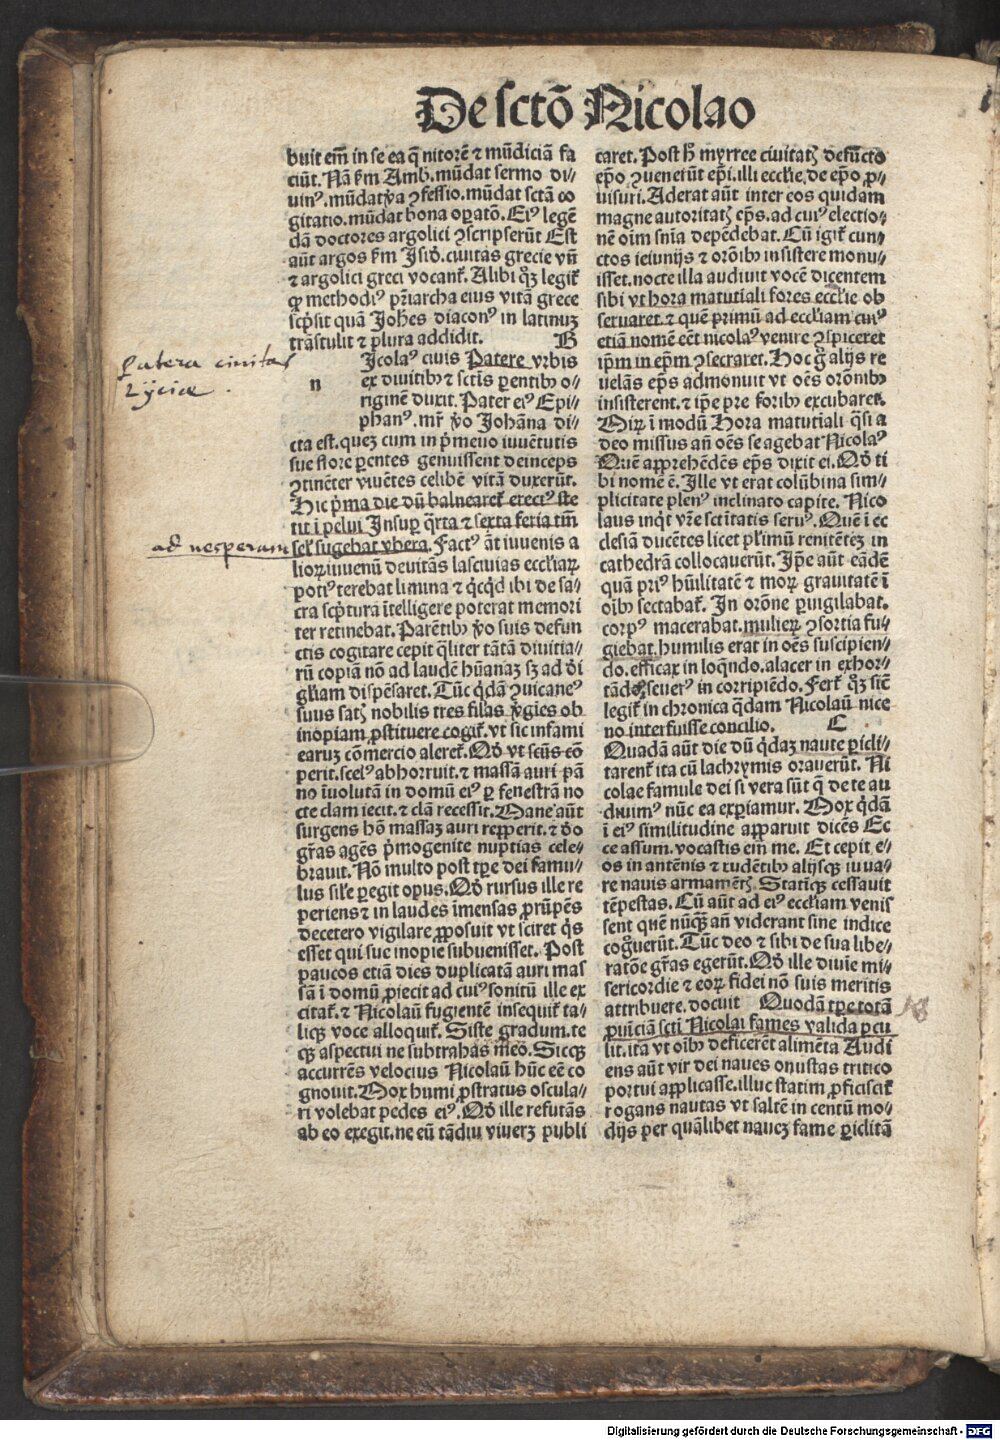 De sctō Nicolao
buit em̄ in se ea q̄ nitorē ⁊ mūdiciā fa
ciūt. Nā ẜm Amb. mūdat sermo di⸗
uinꝰ. mūdat ꝟa ꝯfessio. mūdat sctā co
gitatio. mūdat bona oꝑatō. Eiꝰ legē
dā doctores argolici ꝯscripserūt Est
aūt argos ẜm Isid. ciuitas grecie vn̄
⁊ argolici greci vocant̄. Alibi qꝫ legit̄
ꝙ methodiꝰ pr̄iarcha eius vitā grece
sc̄psit quā Joh̄es diaconꝰ in latinuꝫ
trāstulit ⁊ plura addidit. B
n Icolaꝰ ciuis Patere vrbis
ex diuitibꝰ ⁊ sctīs ꝑentibꝰ o⸗
riginē duxit. Pater eiꝰ Epi⸗
phanꝰ. mr̄ ꝟo Johāna di⸗
cta est. queꝫ cum in p̄meuo iuuētutis
sue flore ꝑentes genuissent deinceps
ꝯtinēter viuētes celibē vitā duxerūt.
Hic p̄ma die dū balnearet̄ erectꝰ ste
tit ī pelui Insuꝑ q̄rta ⁊ sexta feria tm̄
sel̄ sugebat vbera. Factꝰ āt iuuenis a
lioꝝ iuuenū deuitās lasciuias eccl̄iaꝝ
potiꝰ terebat limina ⁊ qcq̄d ibi de sa⸗
cra sc̄ptura ītelligere poterat memori
ter retinebat. Parētibꝰ ꝟo suis defun
ctis cogitare cepit qliter tātā diuitia⸗
rū copiā nō ad laudē hūanaꝫ sꝫ ad di
gl̄iam dispēsaret. Tūc qdā ꝯuicaneꝰ
suus satꝭ nobilis tres filas ꝟgies ob
inopiam ꝓstituere cogit̄. vt sic infami
earuꝫ cōmercio aleret̄. Qd vt scūs cō
perit. scelꝰ abhorruit. ⁊ massā auri pā
no īuolutā in domū eiꝰ ꝑ fenestrā no
cte clam iecit. ⁊ clā recessit. Mane aūt
surgens hō massaꝫ auri repperit. ⁊ do
gr̄as agēs p̄mogenite nuptias cele⸗
brauit. Nō multo post tp̄e dei famu⸗
lus sil̄e ꝑegit opus. Qd rursus ille re
periens ⁊ in laudes īmensas ꝓrūpēs
decetero vigilare ꝓposuit vt sciret qs
esset qui sue inopie subuenisset. Post
paucos etiā dies duplicatā auri mas
sā ī domū ꝓiecit ad cuiꝰ sonitū ille ex
citat̄. ⁊ Nicolaū fugientē insequit̄ ta⸗
liqꝫ voce alloquit̄. Siste gradum. te
qꝫ aspectui ne subtrahas meo. Sicqꝫ
accurrēs velocius Nicolaū hūc eē co
gnouit. Mox humi ꝓstratus oscula⸗
ri volebat pedes eiꝰ. Qd ille refutās
ab eo exegit. ne eū tādiu viuerꝫ publi
caret. Post h̄ myrree ciuitatꝭ defūcto
ep̄o ꝯuenerūt ep̄i. illi eccl̄ie, de ep̄o ꝓ⸗
uisuri. Aderat aūt inter eos quidam
magne autoritatꝭ ep̄s. ad cuiꝰ electio⸗
nē oīm snīa depēdebat. Cū igit̄ cun⸗
ctos ieiunijs ⁊ orōnibꝰ insistere monu⸗
isset. nocte illa audiuit vocē dicentem
sibi vt hora matutiali fores eccl̄ie ob
seruaret. ⁊ quē primū ad eccl̄iam cuiꝰ
etiā nomē eēt nicolaꝰ venire ꝯspiceret
ip̄m in ep̄m ꝯsecraret. Hoc ḡ alijs re
uelās ep̄s admonuit vt oēs orōnibꝰ
insisterent. ⁊ ip̄e pre foribꝰ excubaret.
Miꝝ ī modū Hora matutiali q̄si a
deo missus an̄ oēs se agebat Nicolaꝰ
Quē apprehēdēs ep̄s dixit ei. Qd ti
bi nomē ē. Ille vt erat colūbina sim⸗
plicitate plenꝰ inclinato capite. Nico
laus inqt vr̄e sctītatis seruꝰ. Quē ī ec
clesiā ducētes licet pl̄imū renitētēꝫ in
cathedrā collocauerūt. Ip̄e aūt eādē
quā priꝰ hūilitatē ⁊ moꝝ grauitatē ī
oībꝰ sectabat̄. In orōne ꝑuigilabat.
corpꝰ macerabat. mulieꝝ ꝯsortia fu⸗
giebat. humilis erat in oēs suscipien⸗
do. efficax in loqndo. alacer in exhor⸗
tādo. seuerꝰ in corripiēdo. Fert̄ qꝫ sic̄
legit̄ in chronica qdam Nicolaū nice
no interfuisse concilio. C
Quadā aūt die dū qdaꝫ naute ꝑicli⸗
tarent̄ ita cū lachrymis orauerūt. Ni
colae famule dei si vera sūt q̄ de te au
diuimꝰ nūc ea exꝑiamur. Mox qdā
ī eiꝰ similitudine apparuit dicēs Ec
ce assum. vocastis em̄ me. Et cepit e⸗
os in antēnis ⁊ rudētibꝰ alijsqꝫ iuua⸗
re nauis armamētꝭ. Statīqꝫ cessauit
tēpestas. Cū aūt ad eiꝰ eccl̄iam venis
sent quē nūqꝫ an̄ viderant sine indice
cognerūt. Tūc deo ⁊ sibi de sua libe⸗
ratōe gr̄as egerūt. Qd ille diuīe mi⸗
sericordie ⁊ eoꝝ fidei nō suis meritis
attribuere. docuit Quodā tp̄e totā
ꝓuīciā scti Nicolai fames valida ꝑcu
lit. ita vt oībꝰ deficerēt alimēta Audi
ens aūt vir dei naues onustas tritico
portui applicasse. illuc statim ꝓficiscit̄
rogans nautas vt saltē in centū mo⸗
dijs per quālibet nauꝫ fame ꝑiclitā
patera ciuitas
Lyciæ.
ad uesperam
Digitalisierung gefördert durch die Deutsche Forschungsgemeinschaft - DFG